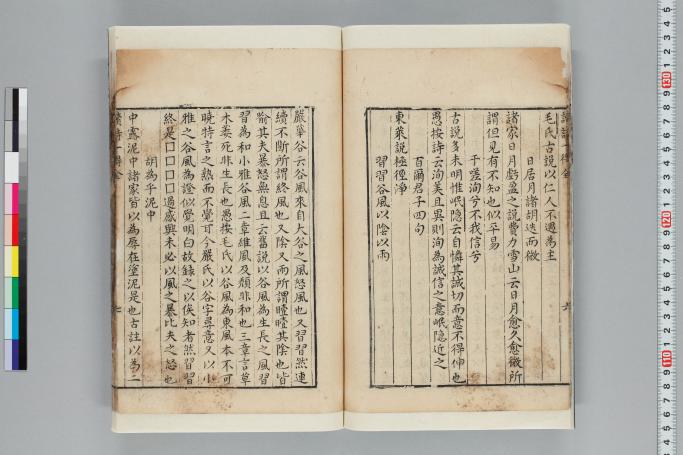 毛氏古說以仁人不遇為主
日居月諸胡迭而微
諸家日月虧盈之說費力雪山云日月愈久愈微所
謂但見有不知也似平易
于嗟洵兮不我信兮
古說多未明惟岷隱云自憐其誠切而意不得伸也
愚按詩云洵美且異則洵為誠信之意岷隱近之
百爾君子四句
東萊說極徑淨
習習谷風以陰以雨
嚴華谷云谷風來自大谷之風怒風也又習習然連
續不斷所謂終風也又陰又雨所謂曀曀其陰也皆
喻其夫暴怒無息且云舊說以谷風為生長之風習
習為和小雅谷風二章維風及頹非和也三章言草
木萎死非生長也愚按毛氏以谷風為東風本不可
曉特言之熟而不覺耳今嚴氏以谷字尋意又以小
雅之谷風為證似覺明白故錄之以俟知者然習習
終是囗囗囗囗過感興未必以風之暴比夫之怒也
胡為乎泥中
中露泥中諸家皆以為辱在塗泥是也古註以為二
讀詩一得全
六
七
130
120
110